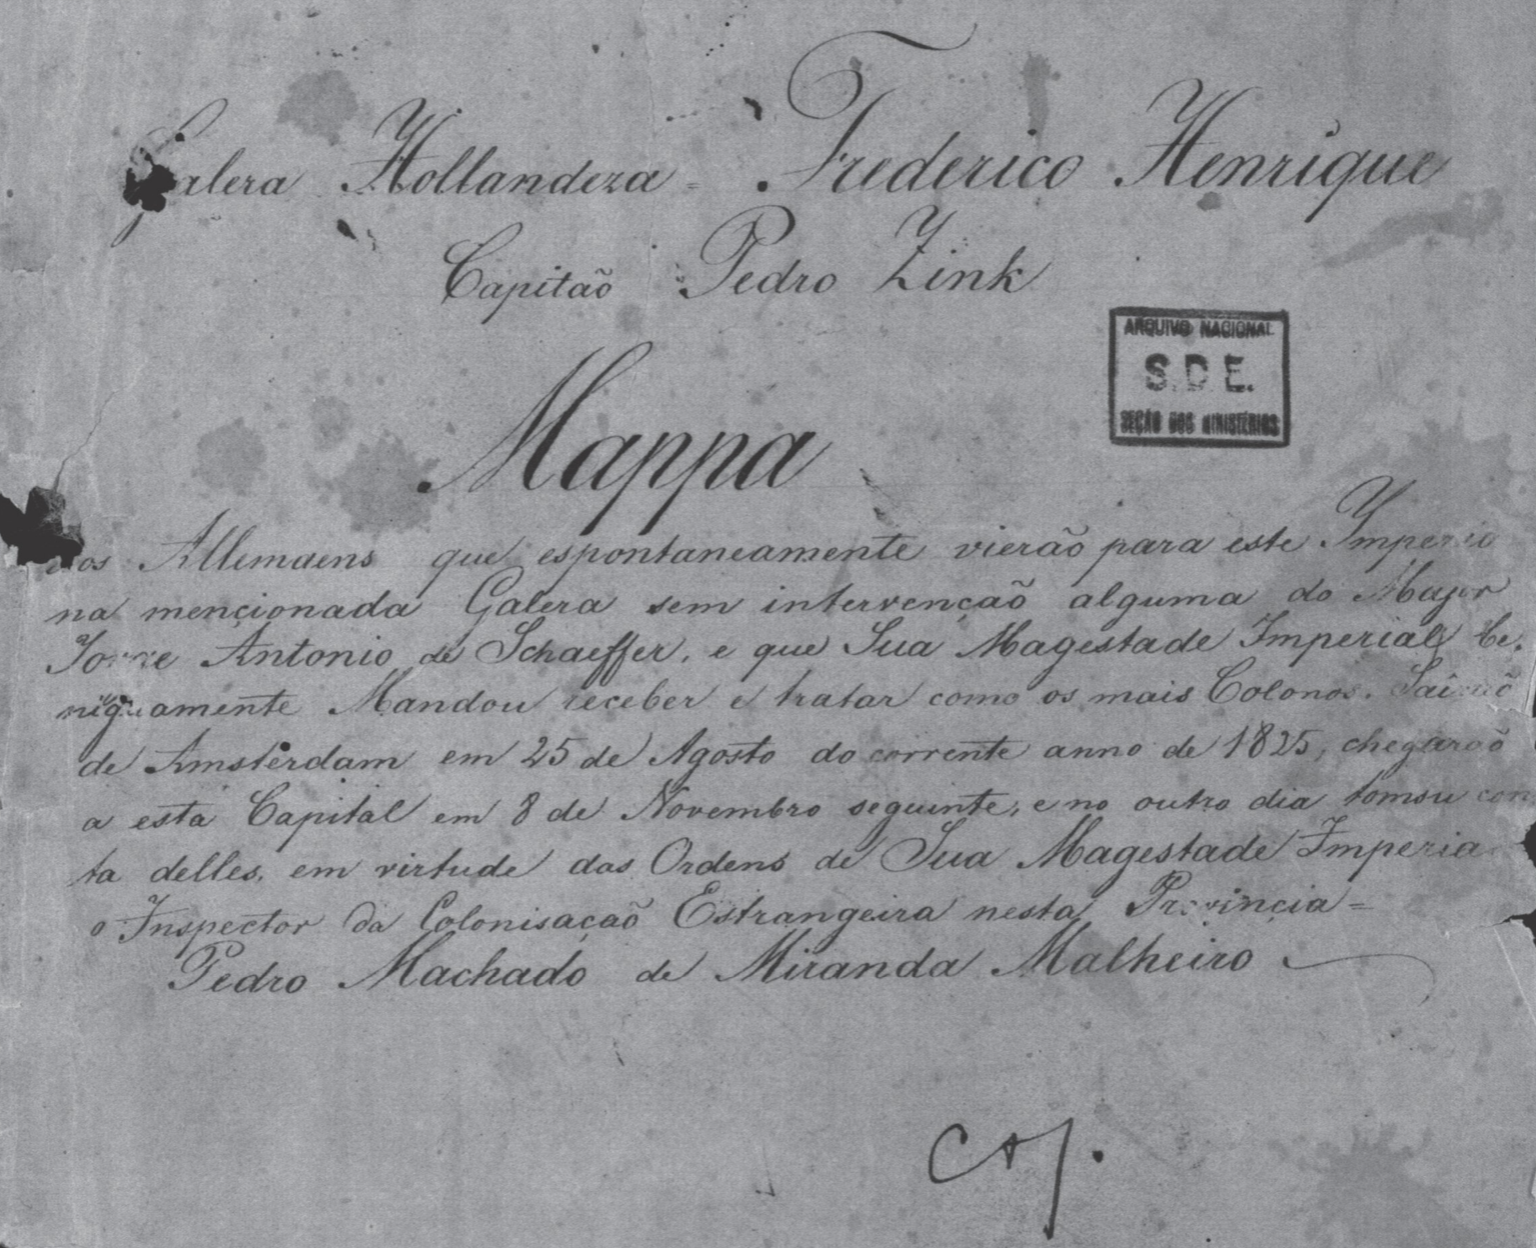 Galera Hollandeza = Frederico Henrique
Capitão Pedro Zink
ARQUIVO NACIONAL
S.D.E.
SEÇÃO DOS MINISTÉRIOS
Mappa
dos Allemaens que espontaneamente vierão para este Imperio
na mencionada Galera sem intervenção alguma do Major
Jorge Antonio de Schaeffer, e que Sua Magestade Imperial Be-
nignamente Mandou receber e tratar como os mais Colonos. Sairaõ
de Amsterdam em 25 de Agosto do corrente anno de 1825, chegaraõ
a esta Capital em 8 de Novembro seguinte, e no outro dia tomou con
ta delles, em virtude das Ordens de Sua Magestade Imperial
o Inspector da Colonisaçaõ Estrangeira nesta Provincia =
Pedro Machado de Miranda Malheiro